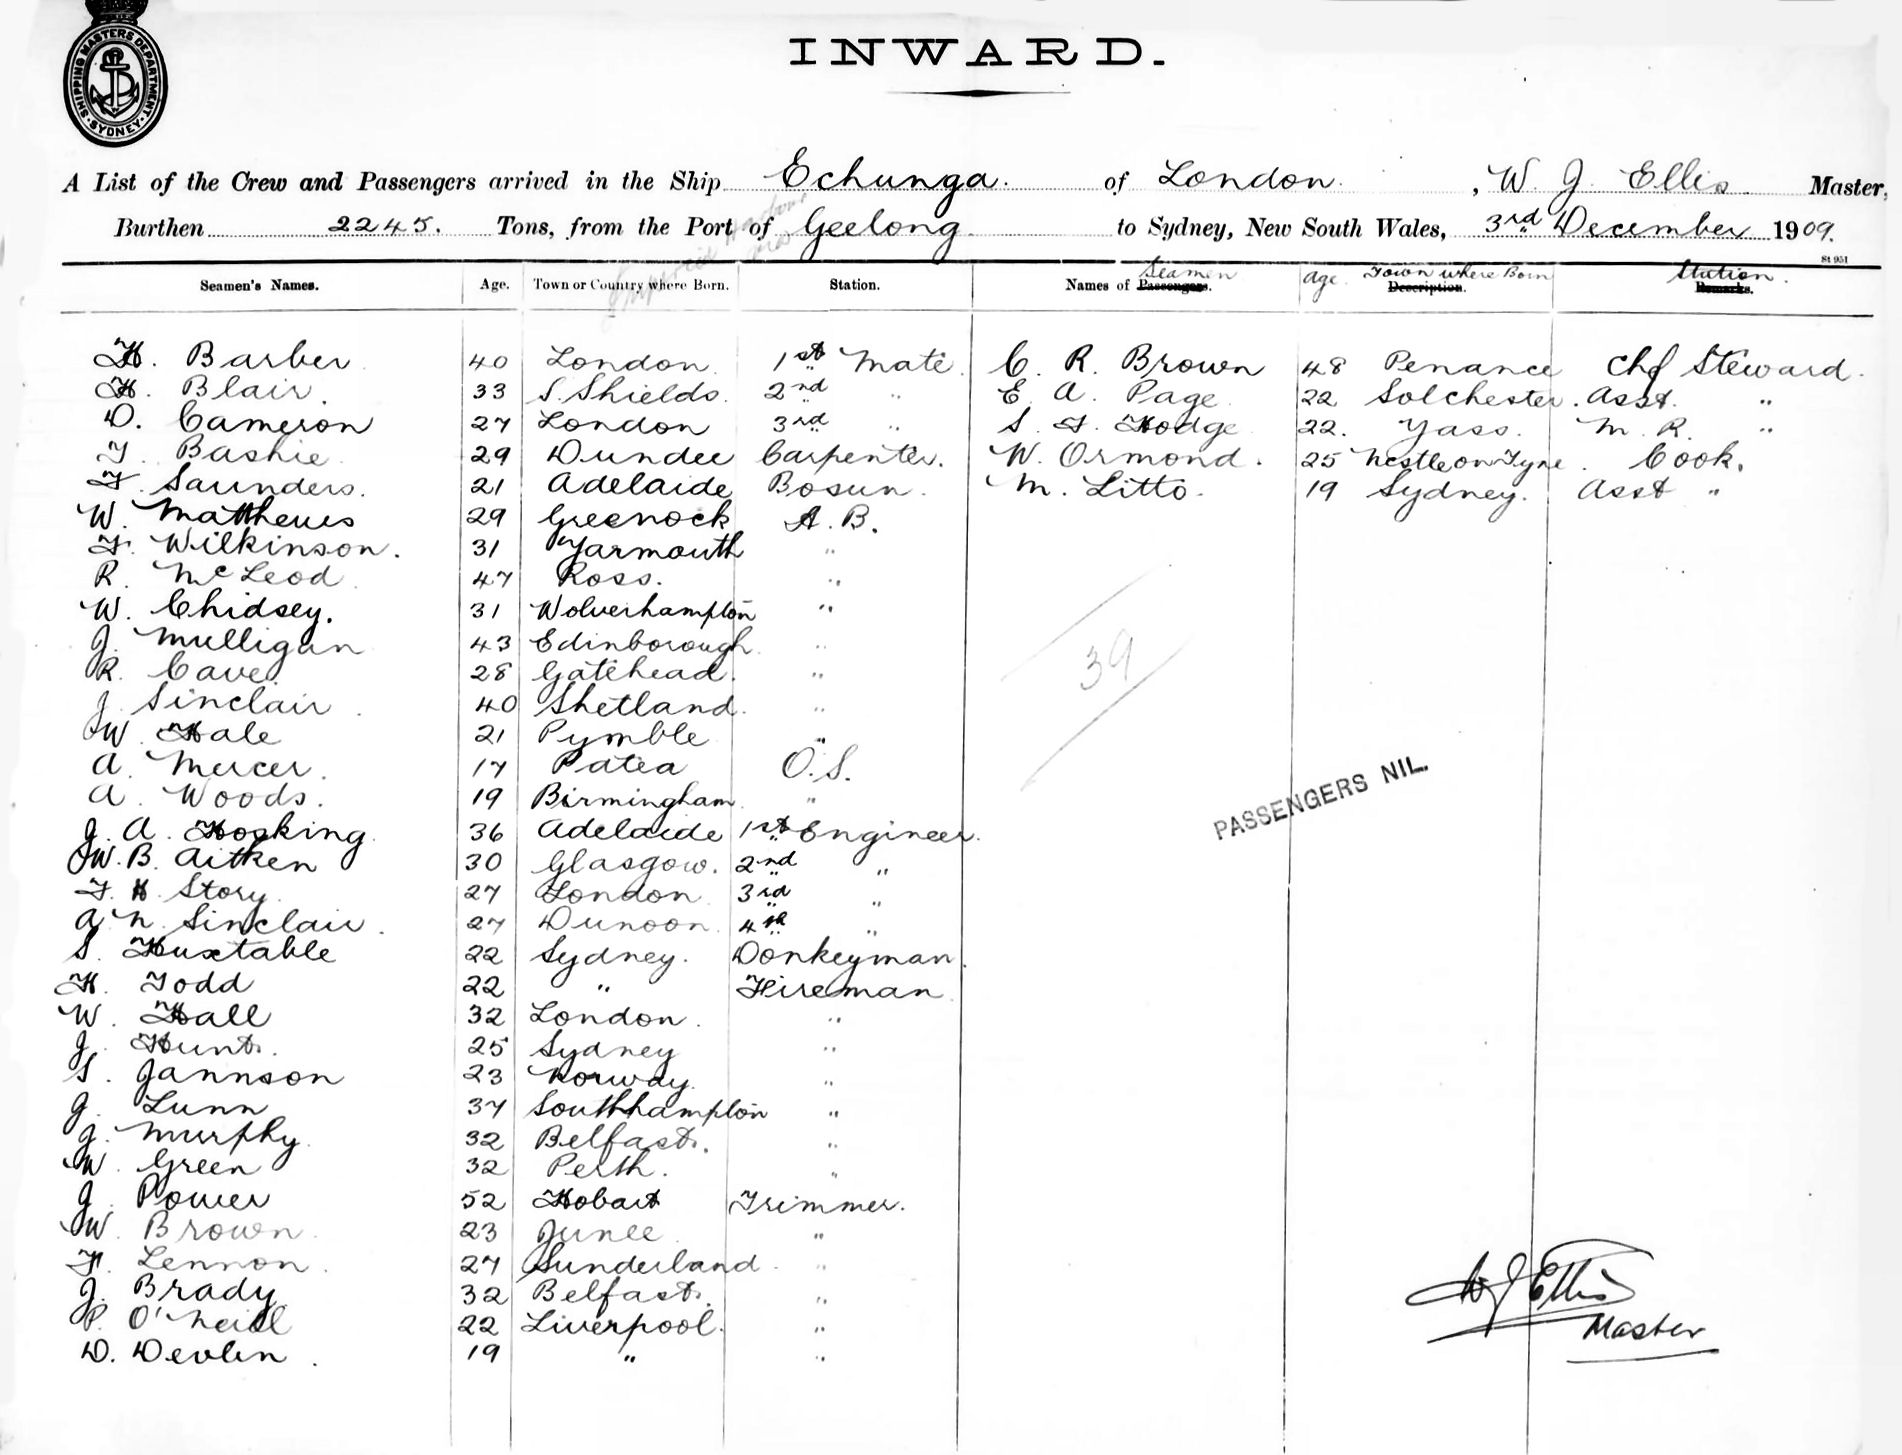 SHIPPING MASTERS DEPARTMENT
SYDNEY
INWARD.
A List of the Crew and Passengers arrived in the Ship Echunga. of London. , W. J. Ellis Master,
Burthen 2245. Tons, from the Port of Geelong to Sydney, New South Wales, 3rd December 1909.
St 951
Seamen's Names. Age. Town or Country where Born. Station. Names of Passengers. Seamen Age Town where Born Description. Station Remarks.
H. Barber 40 London 1st Mate C. R. Brown 48 Penance Chf Steward.
H. Blair. 33 S. Shields 2nd " E. A. Page 22 Solchester. Asst. "
D. Cameron 27 London 3rd " S. F. Hodge 22. Yass. M. R. "
T. Bashie 29 Dundee Carpenter. W. Ormond. 25 Nestle on Tyne. Cook.
F. Saunders. 21 Adelaide Bosun. M. Litto. 19 Sydney. Asst "
W. Matthews 29 Greenock A. B.
F. Wilkinson. 31 Yarmouth "
R. McLeod 47 Ross. "
W. Chidsey. 31 Wolverhampton "
J. Mulligan 43 Edinborough "
R. Cave 28 Gatehead. "
J. Sinclair 40 Shetland. "
W. Hale 21 Pymble "
A. Mercer. 17 Patea O.S.
A. Woods. 19 Birmingham "
J. A. Hosking 36 Adelaide 1st Engineer.
W. B. Aitken 30 Glasgow. 2nd "
F. H. Story 27 London 3rd "
A. N. Sinclair. 27 Dunoon 4th "
S. Huxtable 22 Sydney. Donkeyman.
H. Todd 22 " Fireman
W. Hall 32 London. "
J. Hunt. 25 Sydney "
S. Jannson 23 Norway. "
J. Lunn 37 Southhampton "
J. Murphy. 32 Belfast. "
W. Green 32 Perth. "
J. Power 52 Hobart Trimmer.
W. Brown 23 Junee "
F. Lennon. 27 Sunderland. "
J. Brady 32 Belfast. "
P. O'Neill 22 Liverpool. "
D. Devlin. 19 " "
39
PASSENGERS NIL.
W J Ellis
Master